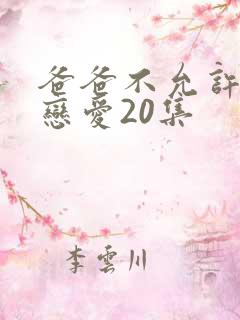 爸爸不允許
戀愛20集
李雲川